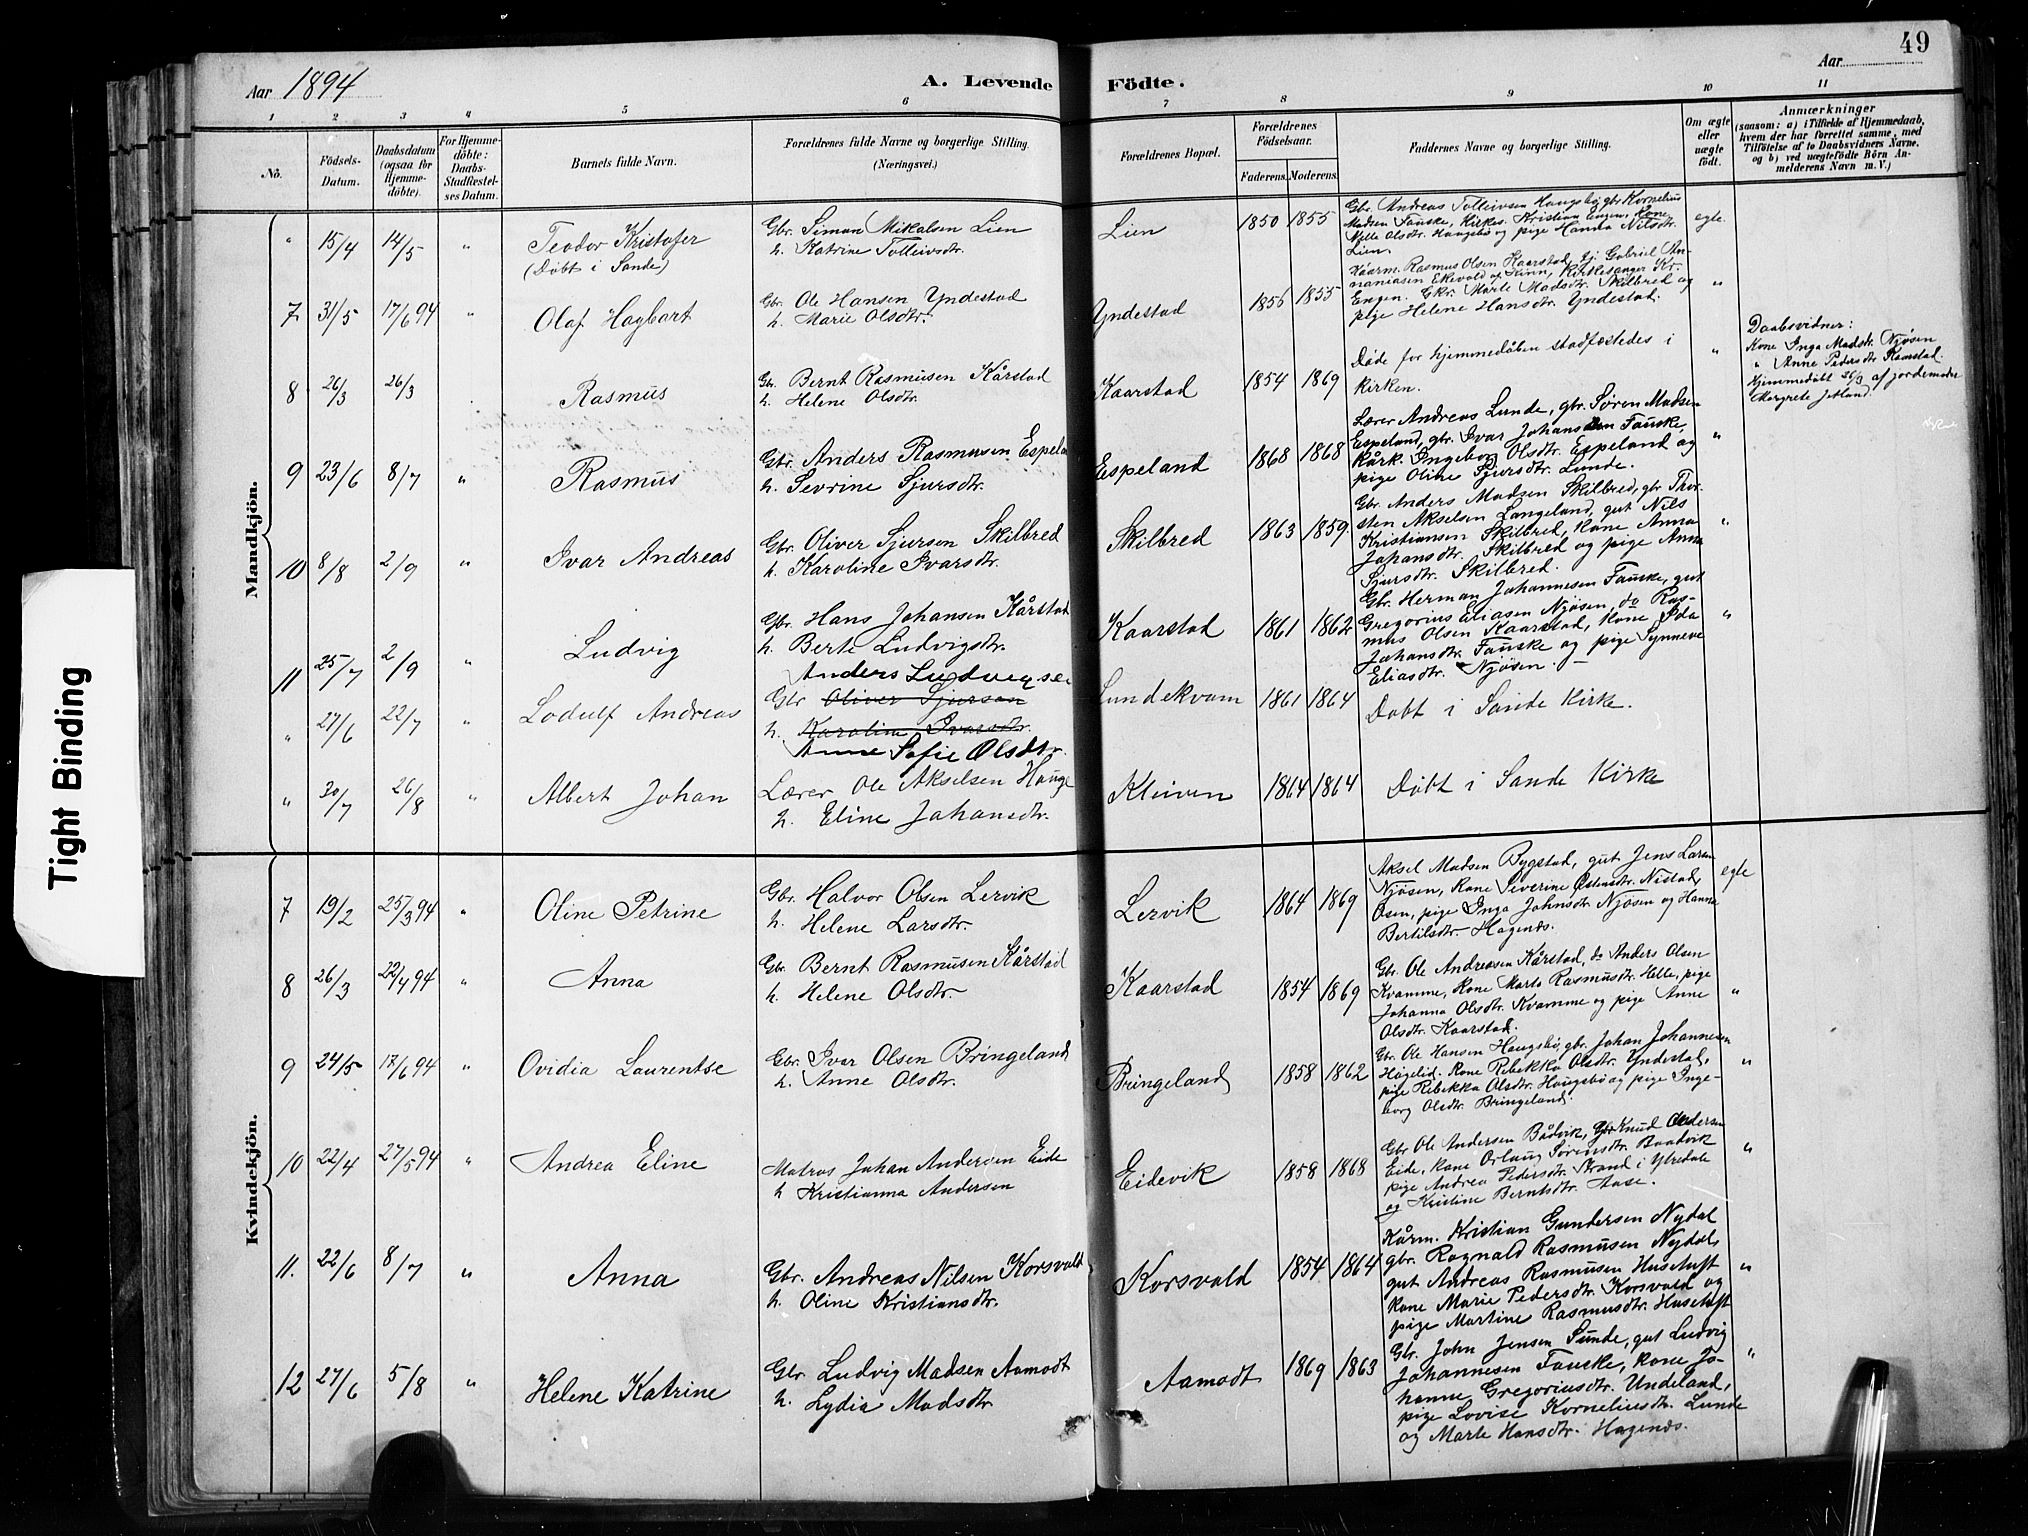 49
Aar 1894
A. Levende
Födte.
Aar
1 2 3 4 5 6 7 8 9 10 11
No.
Födsels-
Datum.
Daabsdatum
(ogsaa for
Hjemme-
döbte).
For Hjemme-
döbte:
Daabs-
Stadfæstel-
ses Datum.
Barnets fulde Navn.
Forældrenes fulde Navne og borgerlige Stilling.
(Næringsvei.)
Forældrenes Bopæl.
Forældrenes
Födselsaar.
Faderens. Moderens.
Faddernes Navne og borgerlige Stilling.
Om ægte
eller
uægte
födt.
Anmærkninger
(saasom: a) i Tilfælde af Hjemmedaab,
hvem der har forrettet samme, med
Tilföielse af to Daabsvidners Navne.
og b) ved uægtefödte Börn An-
melderens Navn m. V.)
Mandkjön.
" 15/4 14/5 " Teodor Kristofer
(Døbt i Sande)
Gbr. Simon Mikalsen Lien
h. Katrine Tolleivsdtr.
Lien 1850 1855
Gbr. Andreas Tolleivsen Haugsbø, gbr Kornelius
Madsen Fauske, Kirkes. Kristian Engen, Kone
Nille Olsdtr. Haugsbø og pige Hanna Nilsdtr.
Lien
egte
7 31/5 17/6 94 " Olaf Hagbart
Gbr. Ole Hansen Yndestad
h. Marie Olsdtr.
Yndestad 1856 1855
Kaarm. Rasmus Olsen Kaarstad, Gabriel An-
naniasen Ekevold af Kinn, Kirkesanger Kr.
Engen. Gkr. Marte Madsdtr. Skilbred og
pige Helene Hansdtr. Yndestad.
"
8 26/3 26/3 Rasmus
Gbr. Bernt Rasmusen Kårstad
h. Helene Olsdtr.
Kaarstad 1854 1869
Døde for hjemmedåben stadfæstedes i
kirken.
"
Daabsvidner:
Kone Inga Madsdtr. Njøsen
" Anne Pedersdtr Kaarstad.
Hjemmedøbt 26/3 af jordemoder
Margrete Jetland.
9 23/6 8/7 " Rasmus
Gbr. Anders Rasmusen Espeland
h. Sevrine Sjursdtr.
Espeland 1868 1868
Lærer Andreas Lunde, gbr. Søren Madsen
Espeland, gbr. Ivar Johansen Fauske,
Kårk. Ingeborg Olsdtr. Espeland og
pige Oline Sjursdtr. Lunde.
"
10 8/8 2/9 " Ivar Andreas
Gbr. Oliver Sjursen Skilbred
h. Karoline Ivarsdtr.
Skilbred 1863 1859.
Gbr. Anders Madsen Skilbred, gbr Thor-
sten Akselsen Langeland, gut Nils
Kristiansen Skilbred, Kone Anna
Johansdtr. Skilbred og pige Anna
Sjursdtr. Skilbred.
"
11 25/7 2/9 " Ludvig
Gbr. Hans Johansen Kårstad
h. Berte Ludvigsdtr.
Kaarstad 1861 1862
Gbr. Herman Johannesen Fauske, gut
Gregorius Eliasen Njøsen, do Ras-
mus Olsen Kaarstad, Kone Ida
Johansdtr. Fauske og pige Synneve
Eliasdtr. Njøsen.
"
" 27/6 22/7 " Lodulf Andreas
Anders Ludvigsen
Gbr Oliver Sjursen
h. Karoline Ivarsdtr.
Anne Sofie Olsdtr.
Lundekvam 1861 1864
Døbt i Sande Kirke.
" 30/7 26/8 " Albert Johan
Lærer Ole Akselsen Hauge
h. Eline Johansdtr.
Kleiven 1864 1864
Døbt i Sande Kirke
Kvindekjön.
7 19/2 25/3 94 " Oline Petrine
Gbr. Halvor Olsen Lervik
h. Helene Larsdtr.
Lervik 1864 1869
Aksel Madsen Bygstad, gut Jens Larsen
Njøsen, Kone Severine Østensdtr. Nistad,
Osen, pige Inga Johnsdtr. Njøsen og Hanna
Bertilsdtr. Hagenæs.
egte
8 26/3 22/4 94 " Anna
Gbr. Bernt Rasmusen Kårstad
h. Helene Olsdtr.
Kaarstad 1854 1869
Gbr. Ole Andreasen Kårstad, do Anders Olsen
Kvamme, Kone Marte Rasmusdtr. Helle, pige
Johanna Olsdtr. Kvamme og pige Anne
Olsdtr. Kaarstad.
"
9 24/5 17/6 94 " Ovidia Laurentse
Gbr. Ivar Olsen Bringeland
h. Anne Olsdtr.
Bringeland 1858 1862
Gbr. Ole Hansen Haugsbø, gbr. Johan Johannesen
Høgelid. Kone Rebekka Olsdtr. Yndestad,
pige Rebekka Olsdtr. Haugsbø og pige Inge-
borg Olsdtr. Bringeland.
"
10 22/4 27/5 94 " Andrea Eline
Matros Johan Andersen Eide
h Kristianna Andersen
Eidevik 1858 1868
Gbr Ole Andersen Bådvik, Gbr Knud Andersen
Eide, kone Orlaug Sørensdtr. Baadvik
pige Andrea Pedersdtr. Strand i Ytredale
og Kristine Berntsdtr. Aase.
"
11. 22/6 8/7 " Anna
Gbr. Andreas Nilsen Korsvold
h. Oline Kristiansdtr.
Korsvold 1854 1864
Kårm. Kristian Gundersen Nydal
gbr. Ragnald Rasmusen Nydal,
gut Andreas Rasmusen Husetuft
kone Marie Pedersdtr. Korsvold og
pige Martine Rasmusdtr. Husetuft
"
12 27/6 5/8 " Helene Katrine
Gbr Ludvig Madsen Aamodt
h. Lydia Madsdtr.
Aamodt 1869 1863
Gbr. John Jensen Sunde, gut Ludvig
Johannesen Fauske, kone Jo-
hanne Gregoriusdtr. Undeland,
pige Lovise Korneliusdtr. Lunde
og Marte Hansdtr. Hagenæs.
"
Tight Binding